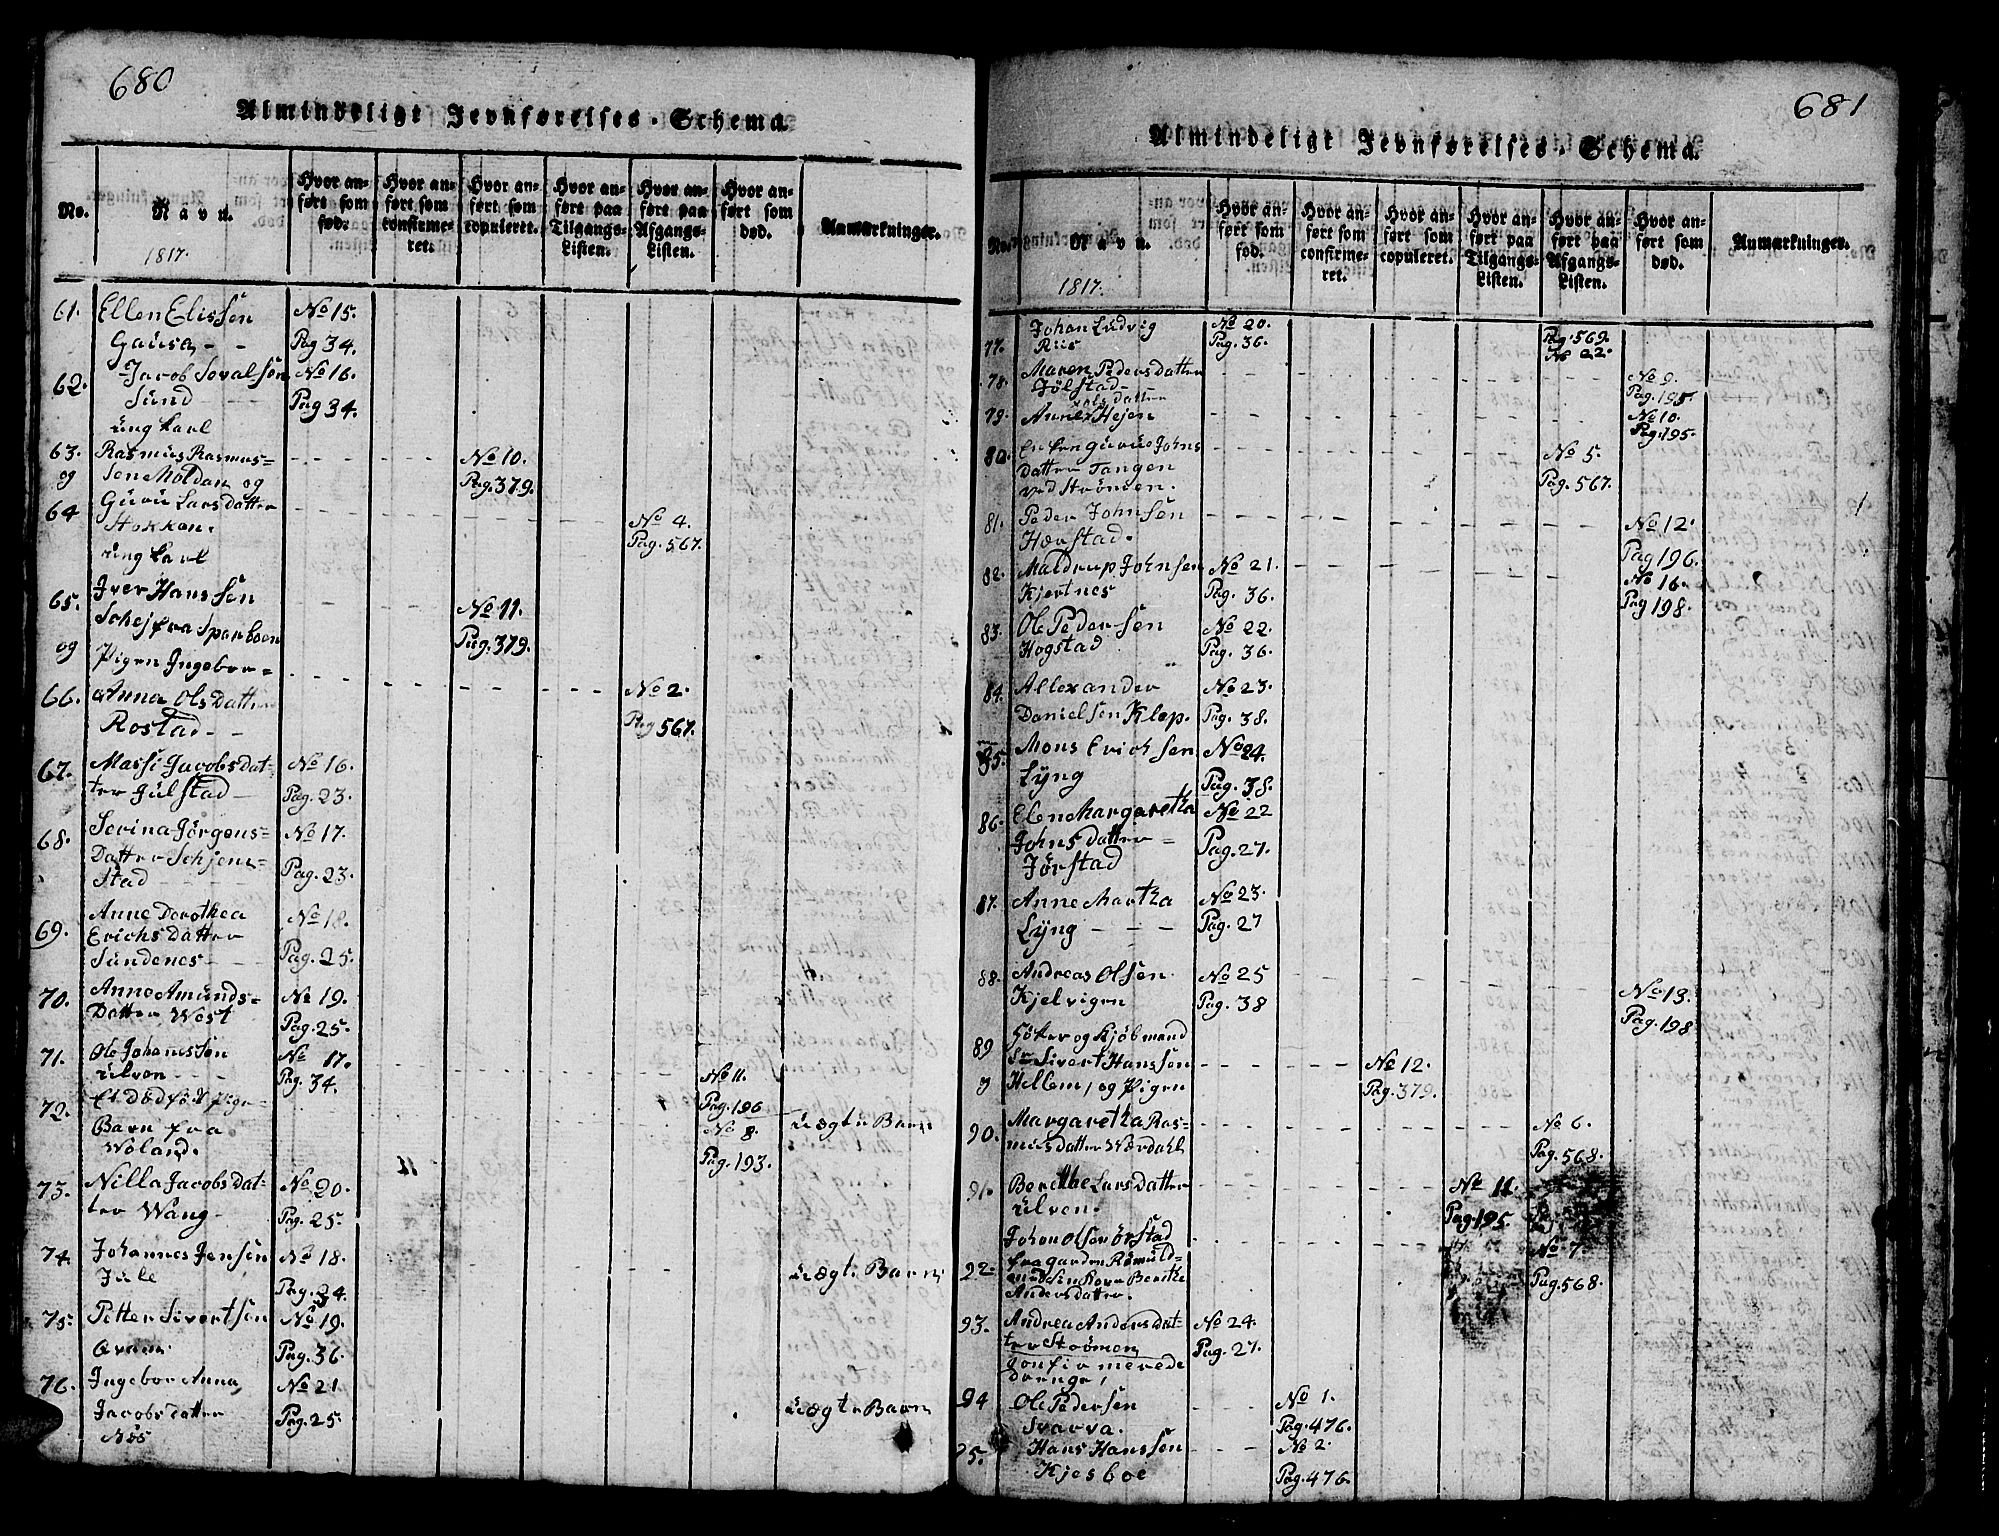 680
Almindeligt Jevnførelses-Schema
No.
Navn.
1817.
Hvor anført som fød.
Hvor anført som confirmeret.
Hvor anført som copuleret.
Hvor anført paa Tilgangs-Listen.
Hvor anført paa Afgangs-Listen.
Hvor anført som død.
Anmærkninger.
61. Ellen Elissen No 15.
Gausen - - Pag 34.
62. Jacob No 16.
Sund - - Pag 34.
ung karl
63. Rasmus Rasmus= - - - No 10.
og Sene Moldan og Pag. 379.
64 Guru Lars datter
Hokken. - - - No 4.
ung karl Pag. 567.
65. Iver Hanssen - - - No 11.
Schej fra Sparboen Pag. 379.
og Pigen Ingebor=
66. Anna Ols Datter - - - No 2.
Rostad - - Pag 567.
67. Massi Jacobs Dat= No 16.
ter Julstad - Pag. 23.
68. Serina Jörgens= No 17.
Datter Schjens=
Stad - - - Pag. 23.
69. Anne Dorothea No 18.
Erichs Datter
Sundenes - - Pag. 25.
70. Anne Amunds= No 19.
Datter West Pag. 25.
71. Ole Johannessen No 17.
Ulven - - - Pag. 34. - - - No 11.
Pag. 196
72. Et dödföd Pige=
Barn fra No 8. Uægte Barn
Woland. Pag. 193.
73. Nilla Jacobs Dat= No 20.
ter Wang - Pag. 25.
74. Johannes Jensen No 18.
Jule Pag. 34. Uægte Barn
75. Petter Sivertsen No 19.
Pag. 36.
76. Ingebor Anna No 21
Jacobs datter Pag. 25. Uægte Barn
Næs
681
Almindeligt Jevnførelses-Schema.
No.
Navn.
1817.
Hvor anført som fød.
Hvor anført som confirmeret.
Hvor anført som copuleret.
Hvor anført paa Tilgangs-Listen.
Hvor anført paa Afgangs-Listen.
Hvor anført som død.
Anmærkninger.
Johan Ludvig No 20. Pag. 569.
77. Riis Pag. 36. No 22.
78. Maren Peders datter - - - No 9.
Jölstad - Pag. 195.
Ols datter
79. Anne x Hejen - - - No 10.
Pag. 195.
80. Enken Guru Johns - - - No 5.
Datter Tangen Pag. 567.
ved Strömen.
81. Peder Johnsen - - - No 12.
Hærstad. Pag 196.
82. Maldrup Johnsen No 21. - - - No 16.
Kjertnes Pag. 36. Pag 198.
83. Ole Pedersen No 22.
Hogstad Pag. 36.
84. Allexander No 23.
Danielsen Klep. Pag. 38.
85. Mons Erichsen No 24.
Lyng Pag. 38.
86. Elen Margaretha No 22
Johns datter = Pag. 27.
Jörstad
87. Anne Martha No 23.
Lyng - - - Pag. 27
88. Andreas Olsen No 25 - - - No 13.
Kjelvigen Pag. 38 Pag. 198
og Kjöbmand
89 Sr Sivert Hanssen - - - No 12.
og Hellem, og Pigen Pag. 379.
90. Margaretha Ras= - - - No 6.
mus datter Værdahl Pag. 568.
91. Berethe Lars datter - - - No 11.
Ulven. Pag. 195.
Johan Olsen Örstad - - - No 7.
92. fra gaarden Römuld
med sin Kone Berithe Pag. 568.
Anders datter.
93. Andrea Anders dat= No 24.
ter Strömen Pag. 27.
Confirmerede
drenge,
94 Ole Pedersen No 1.
Svarva. Pag. 476.
95. Hans Hanssen - - - No 2.
Kjesboe Pag. 476.